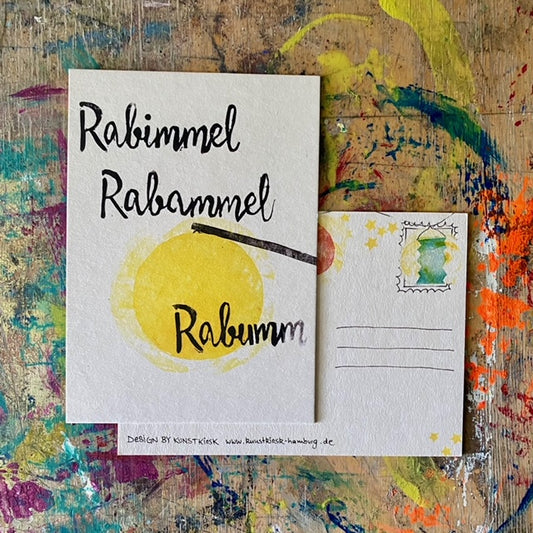 Rabimmel
Rabammel
Rabumm
DESIGN BY KUNSTKIOSK www.kunstkiosk-hamburg.de